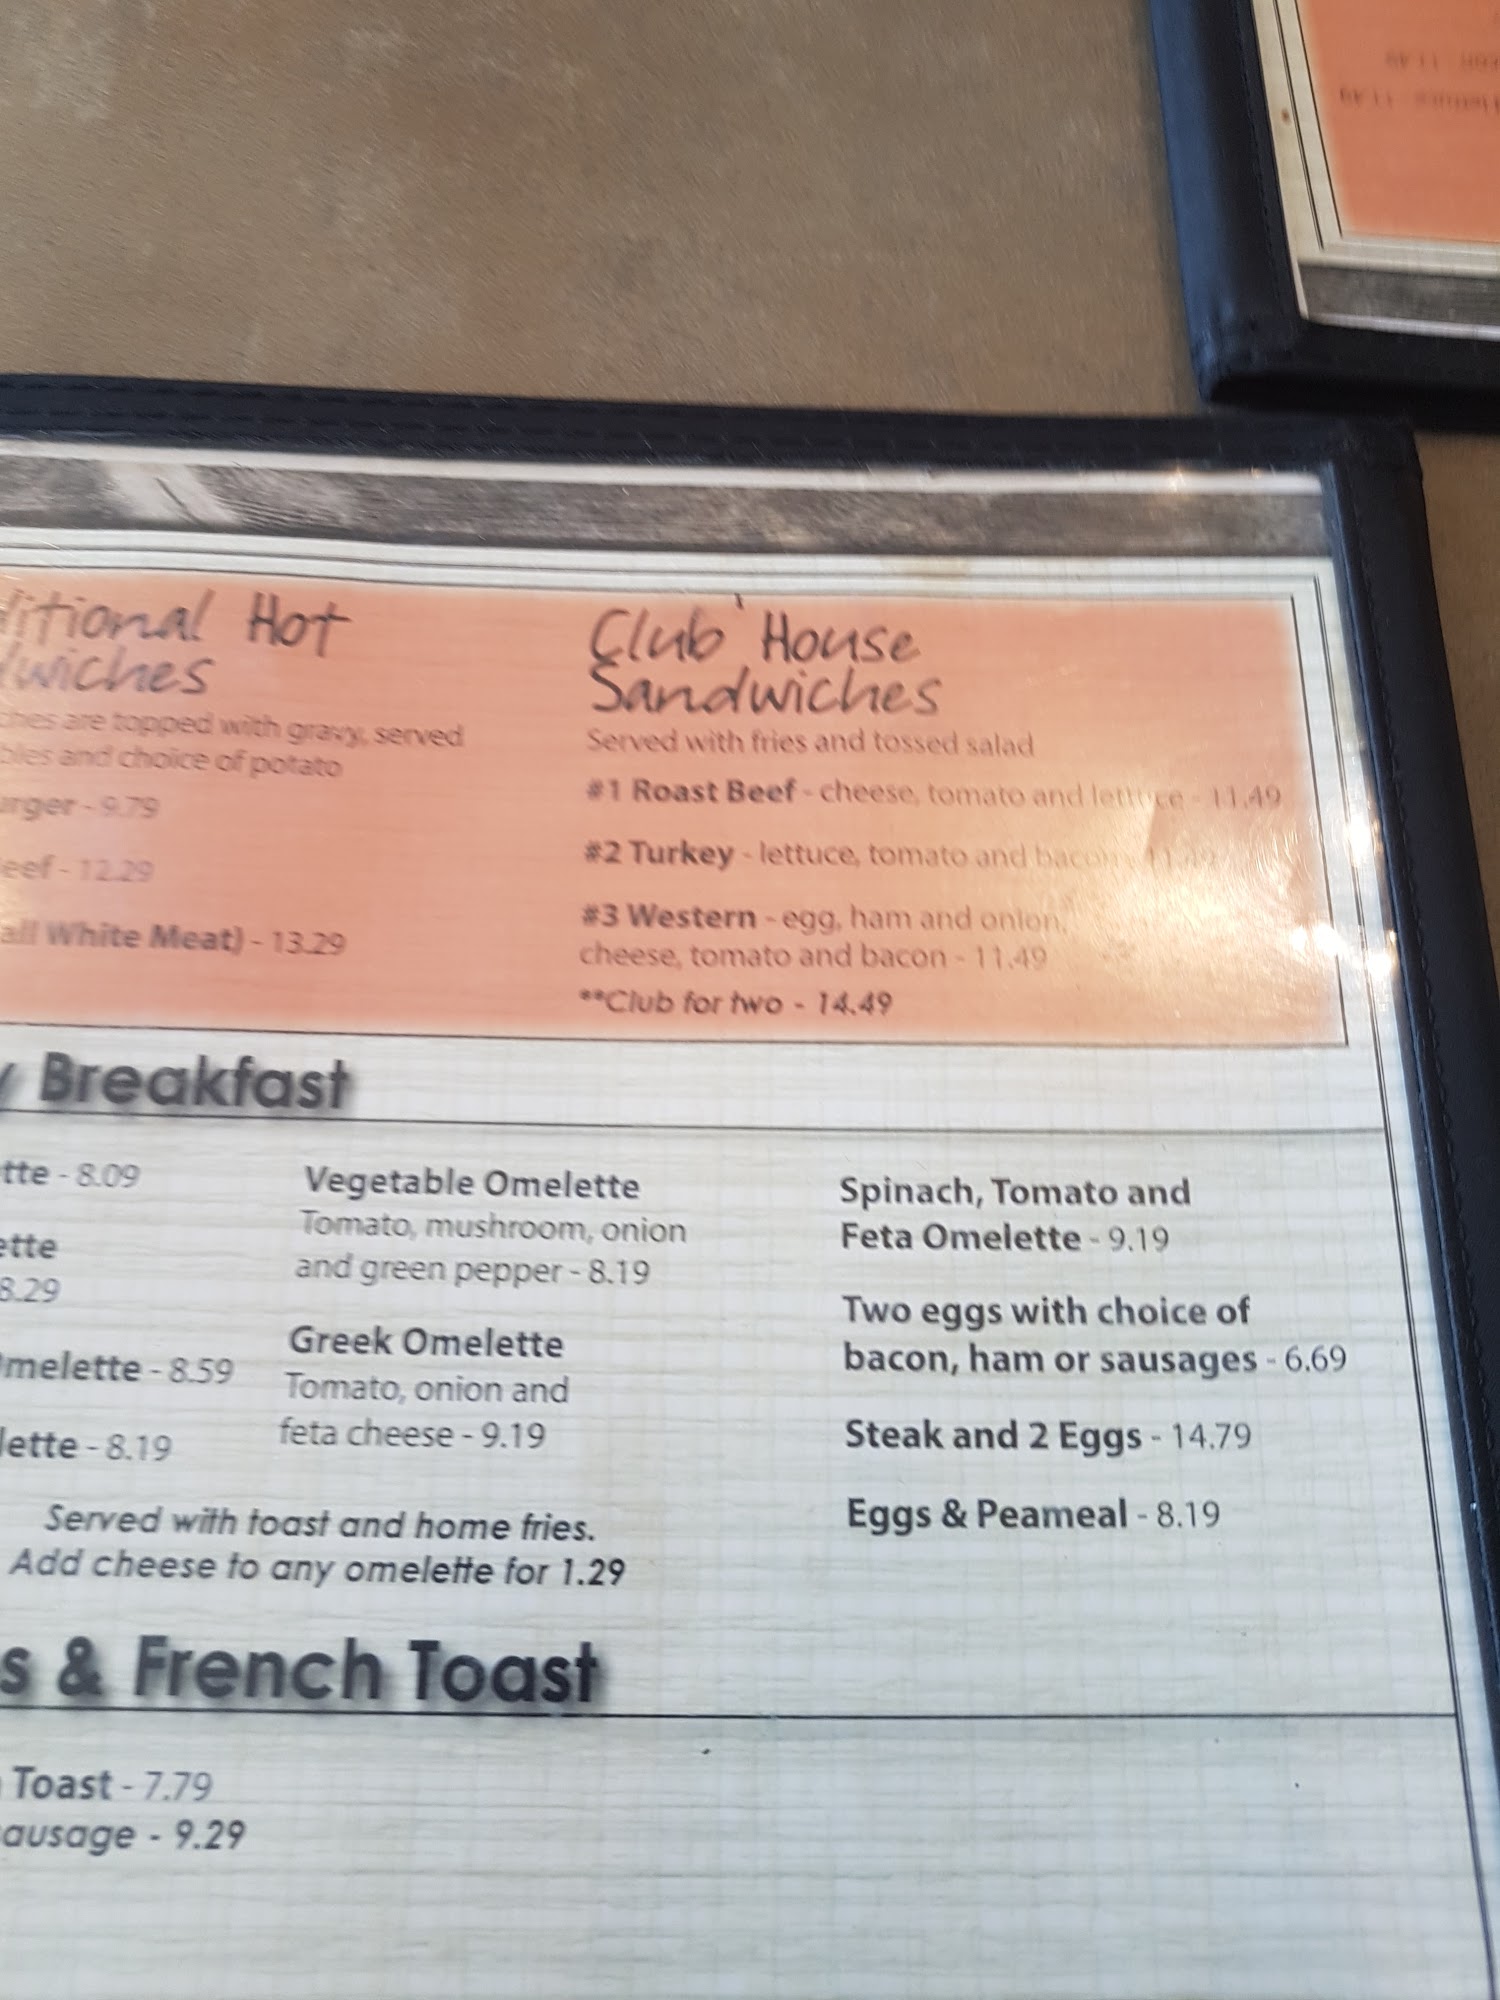 Hot
Sandwiches
are topped with gravy, served
and choice of potato
- 9.79
- 12.29
White Meat) - 13.29
Club House
Sandwiches
Served with fries and tossed salad
#1 Roast Beef - cheese, tomato and lettuce - 11.49
#2 Turkey - lettuce, tomato and bacon - 11.49
#3 Western - egg, ham and onion,
cheese, tomato and bacon - 11.49
**Club for two - 14.49
Breakfast
- 8.09
8.29
Omelette - 8.59
- 8.19
Vegetable Omelette
Tomato, mushroom, onion
and green pepper - 8.19
Greek Omelette
Tomato, onion and
feta cheese - 9.19
Served with toast and home fries.
Add cheese to any omelette for 1.29
Spinach, Tomato and
Feta Omelette - 9.19
Two eggs with choice of
bacon, ham or sausages - 6.69
Steak and 2 Eggs - 14.79
Eggs & Peameal - 8.19
& French Toast
Toast - 7.79
sausage - 9.29